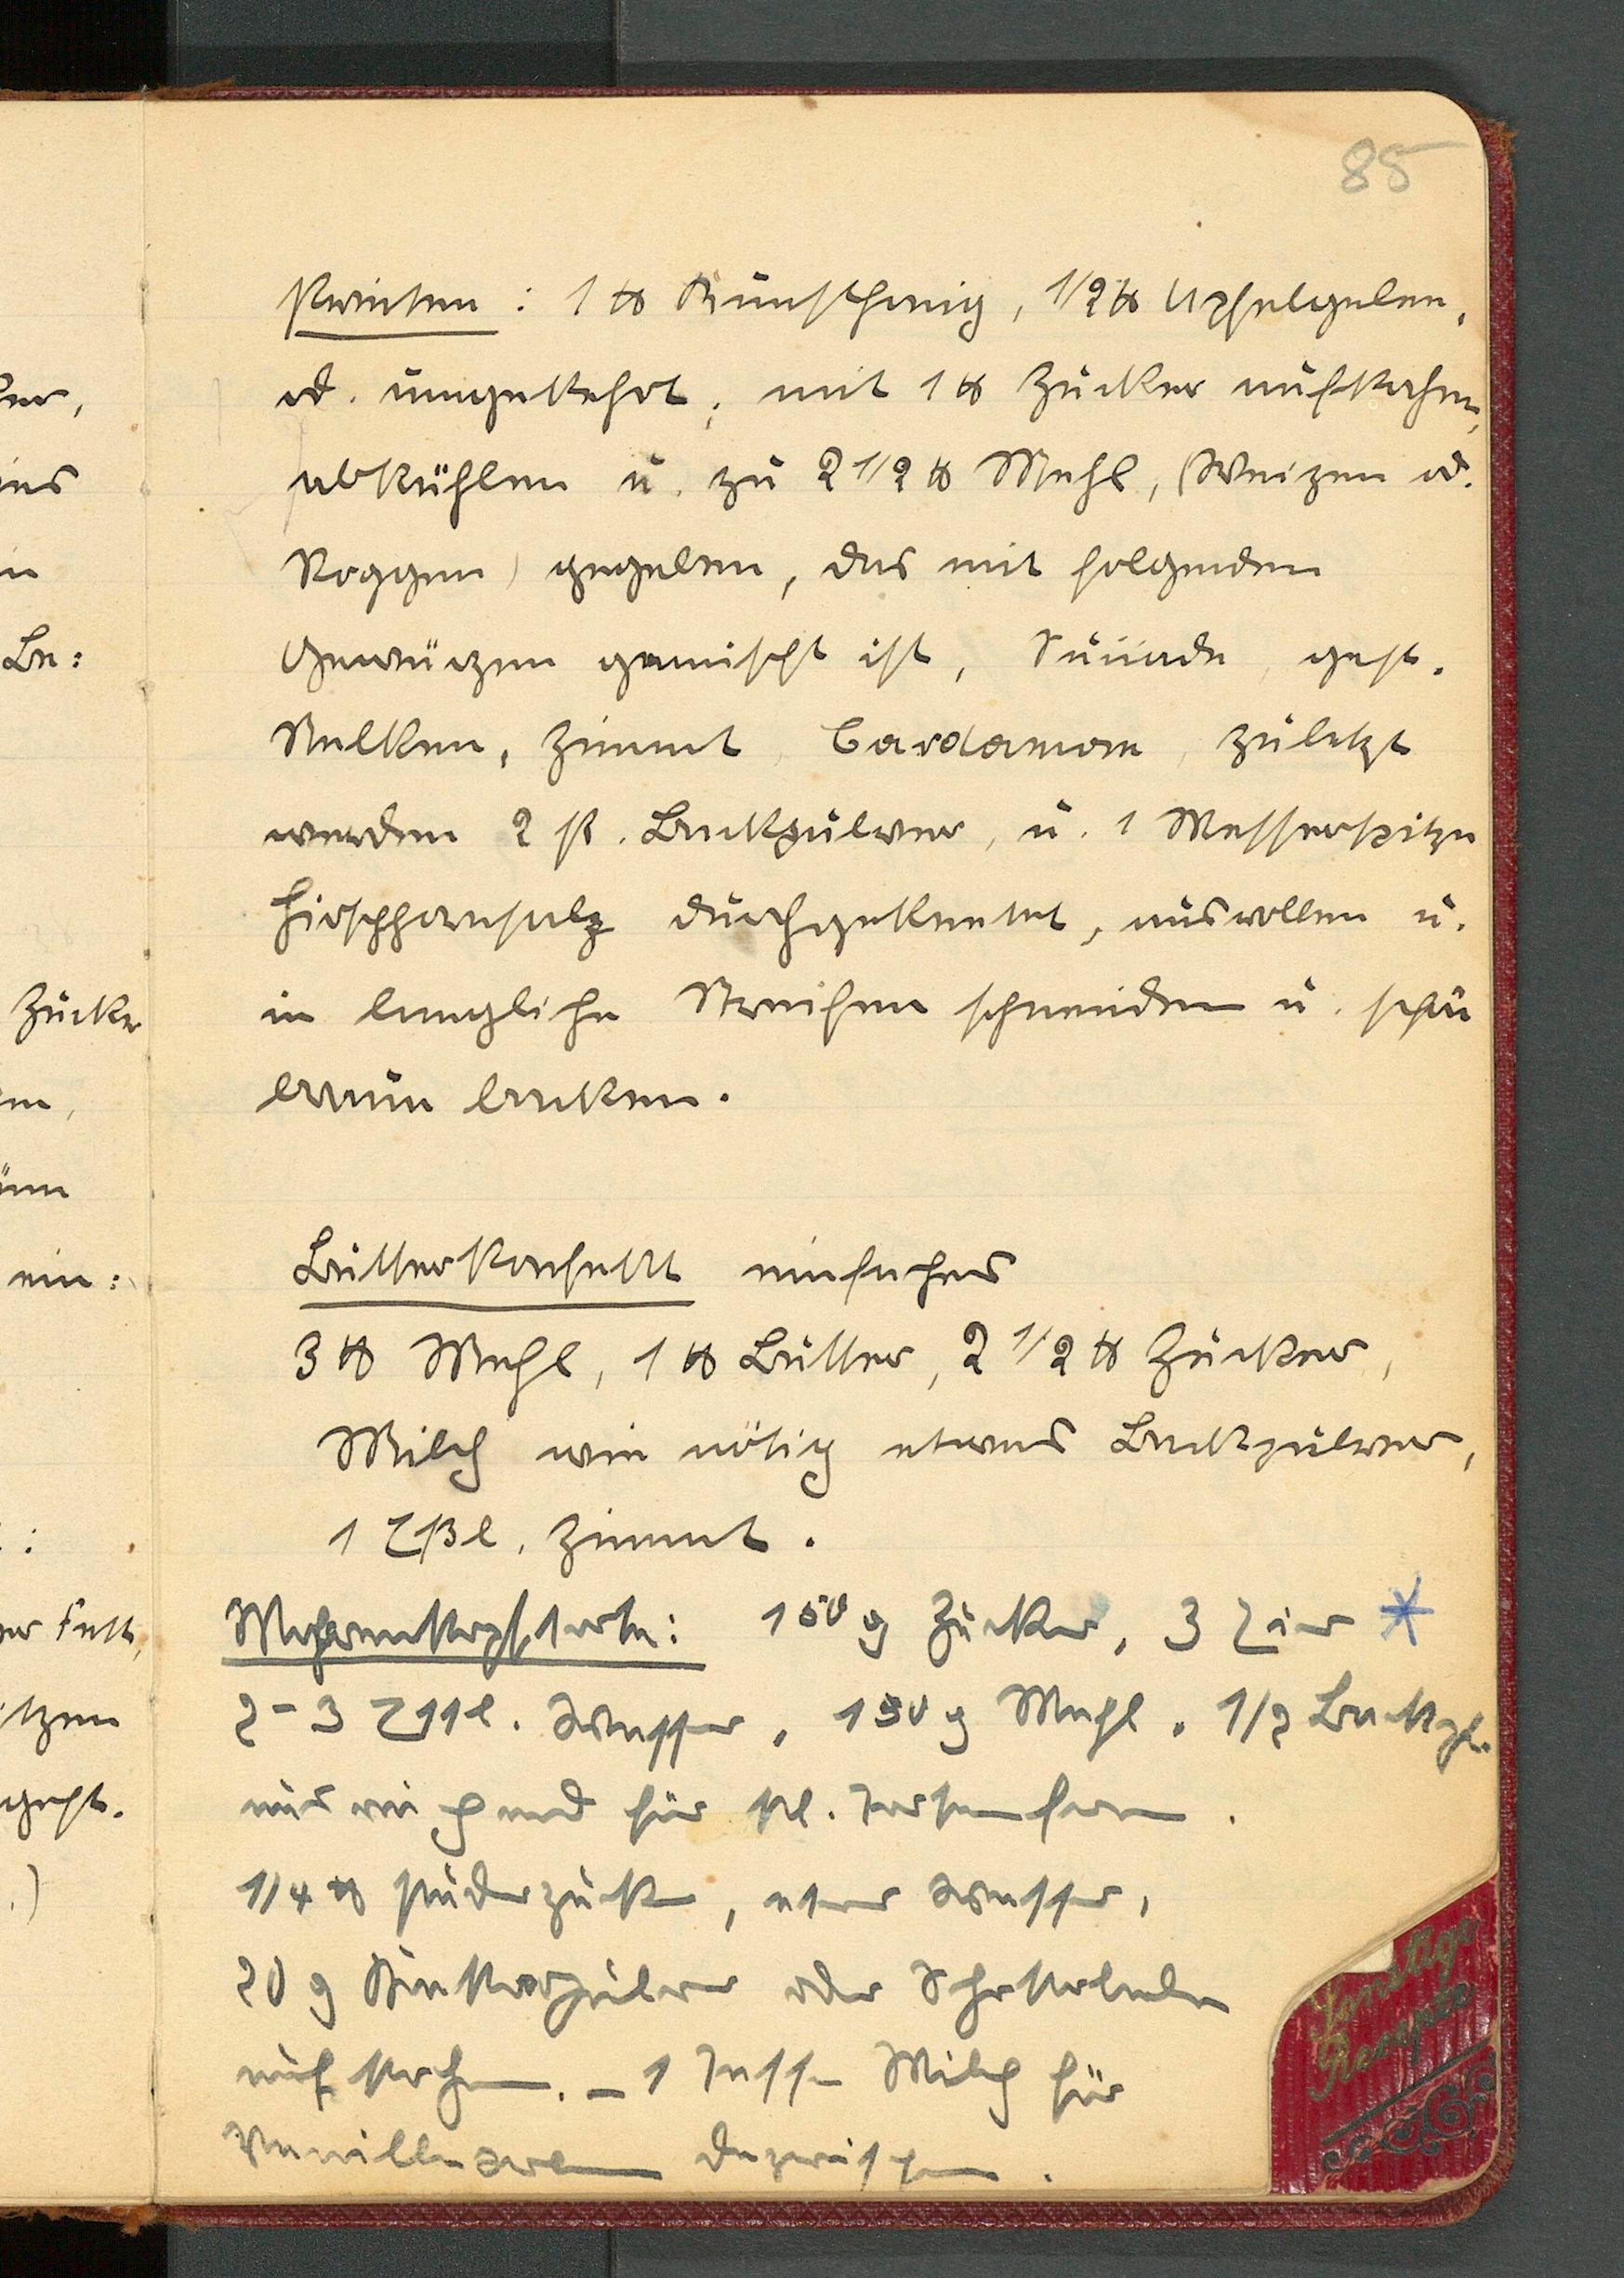 85
Printen : 1 ℔ Kunsthonig, 1/2 ℔ Apfelgelee,
od. umgekehrt, mit 1 ℔ Zucker aufkochen,
abkühlen u. zu 2 1/2 ℔ Mehl, (Weizen od.
Roggen) gegeben, das mit folgenden
Gewürzen gemischt ist, gest.
Nelken, Zimmt, Cardamom, zuletzt
werden 2 P. Backpulver, u. 1 Messerspitze
Hirschhornsalz durchgeknetet, ausrollen u.
in längliche Streifen schneiden u. schön
braun backen.
Butterkonfekt einfaches
3 ℔ Mehl, 1 ℔ Butter, 2 1/2 ℔ Zucker,
Milch wie nötig etwas Backpulver,
1 Eßl. Zimmt.
Mohrenkopftorte: 150 g Zucker, 3 Eier *
2-3 Essl. Wasser, 150 g Mehl, 1/2 Backp.
ausreichend für kl. Tortenform.
1/4 ℔ Puderzucker, etwas Wasser,
20 g Kakaopulver oder Schokolade
aufkochen. – 1 Tasse Milch für
Vanillecreme dazwischen.
Sonstige
Rezepte
Zucker
ein:
Fett,
itzen
gest.